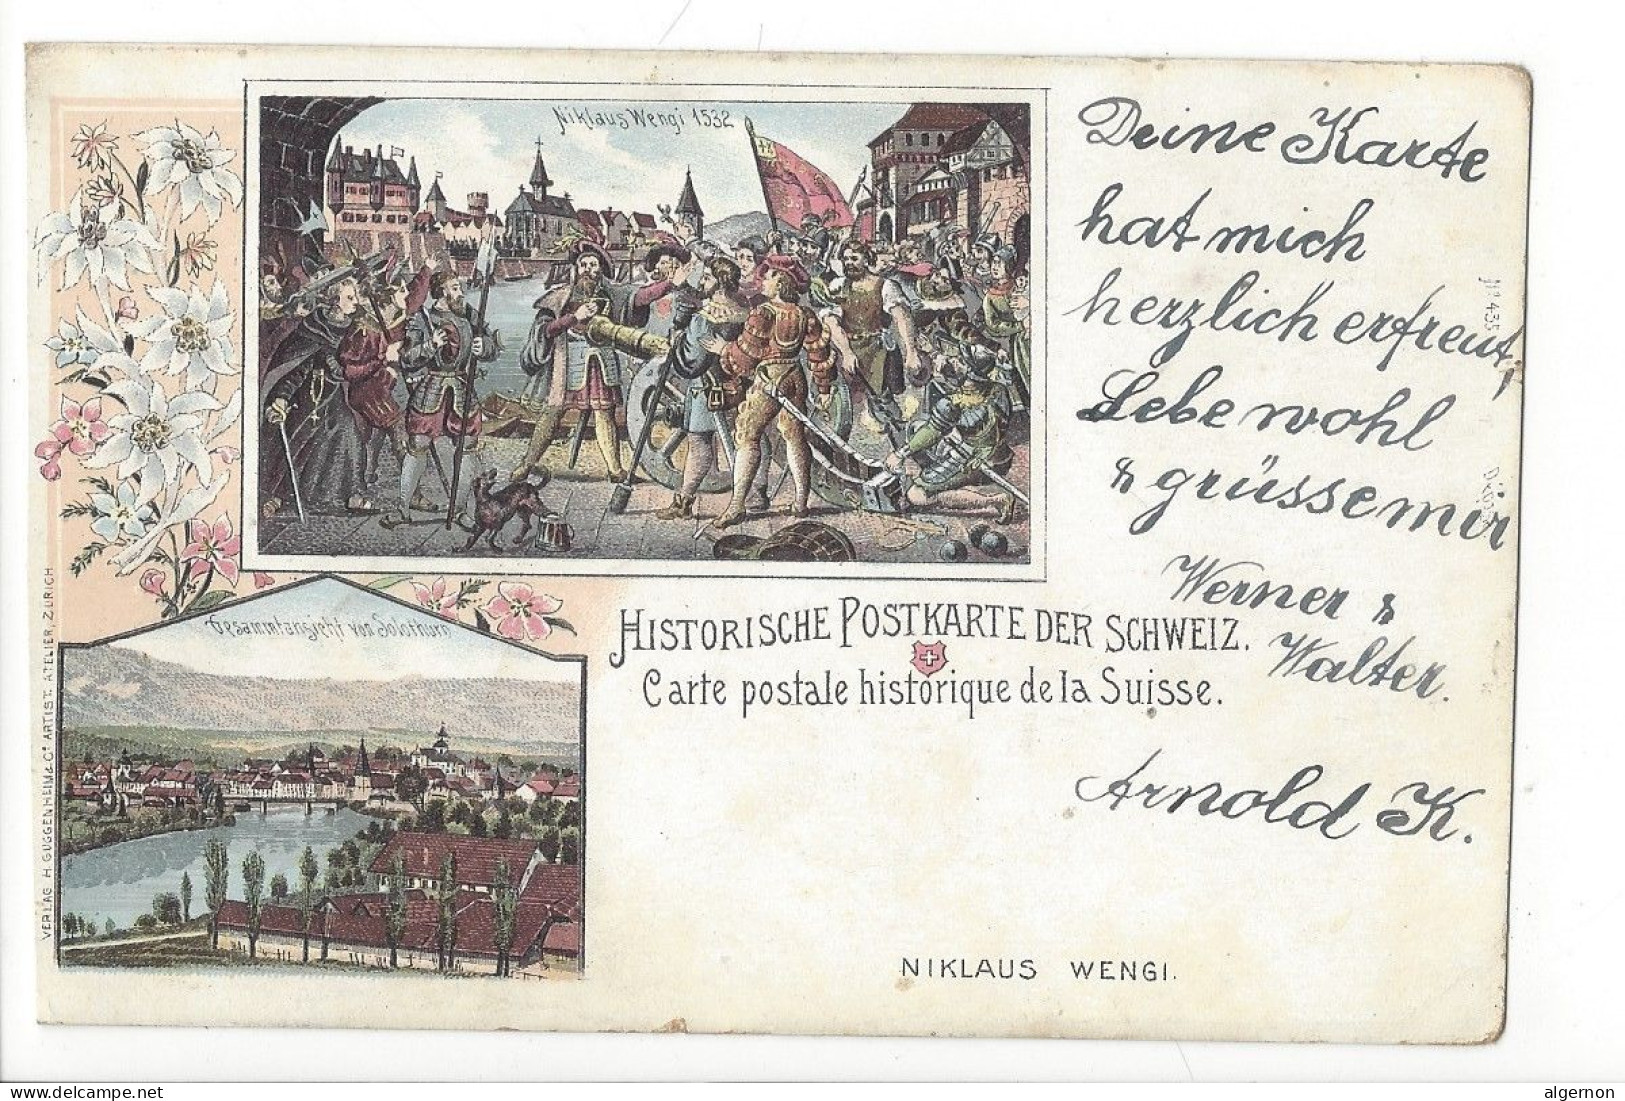 Niklaus Wengi 1532
Deine Karte
hat mich
herzlich erfreut,
Lebe wohl
& grüsse mir
Werner &
Walter.
Arnold K.
HISTORISCHE POSTKARTE DER SCHWEIZ.
Carte postale historique de la Suisse.
Gesammtansicht von Solothurn
VERLAG H. GUGGENHEIM & Co. ARTIST. ATELIER, ZÜRICH
NIKLAUS WENGI.
algernon